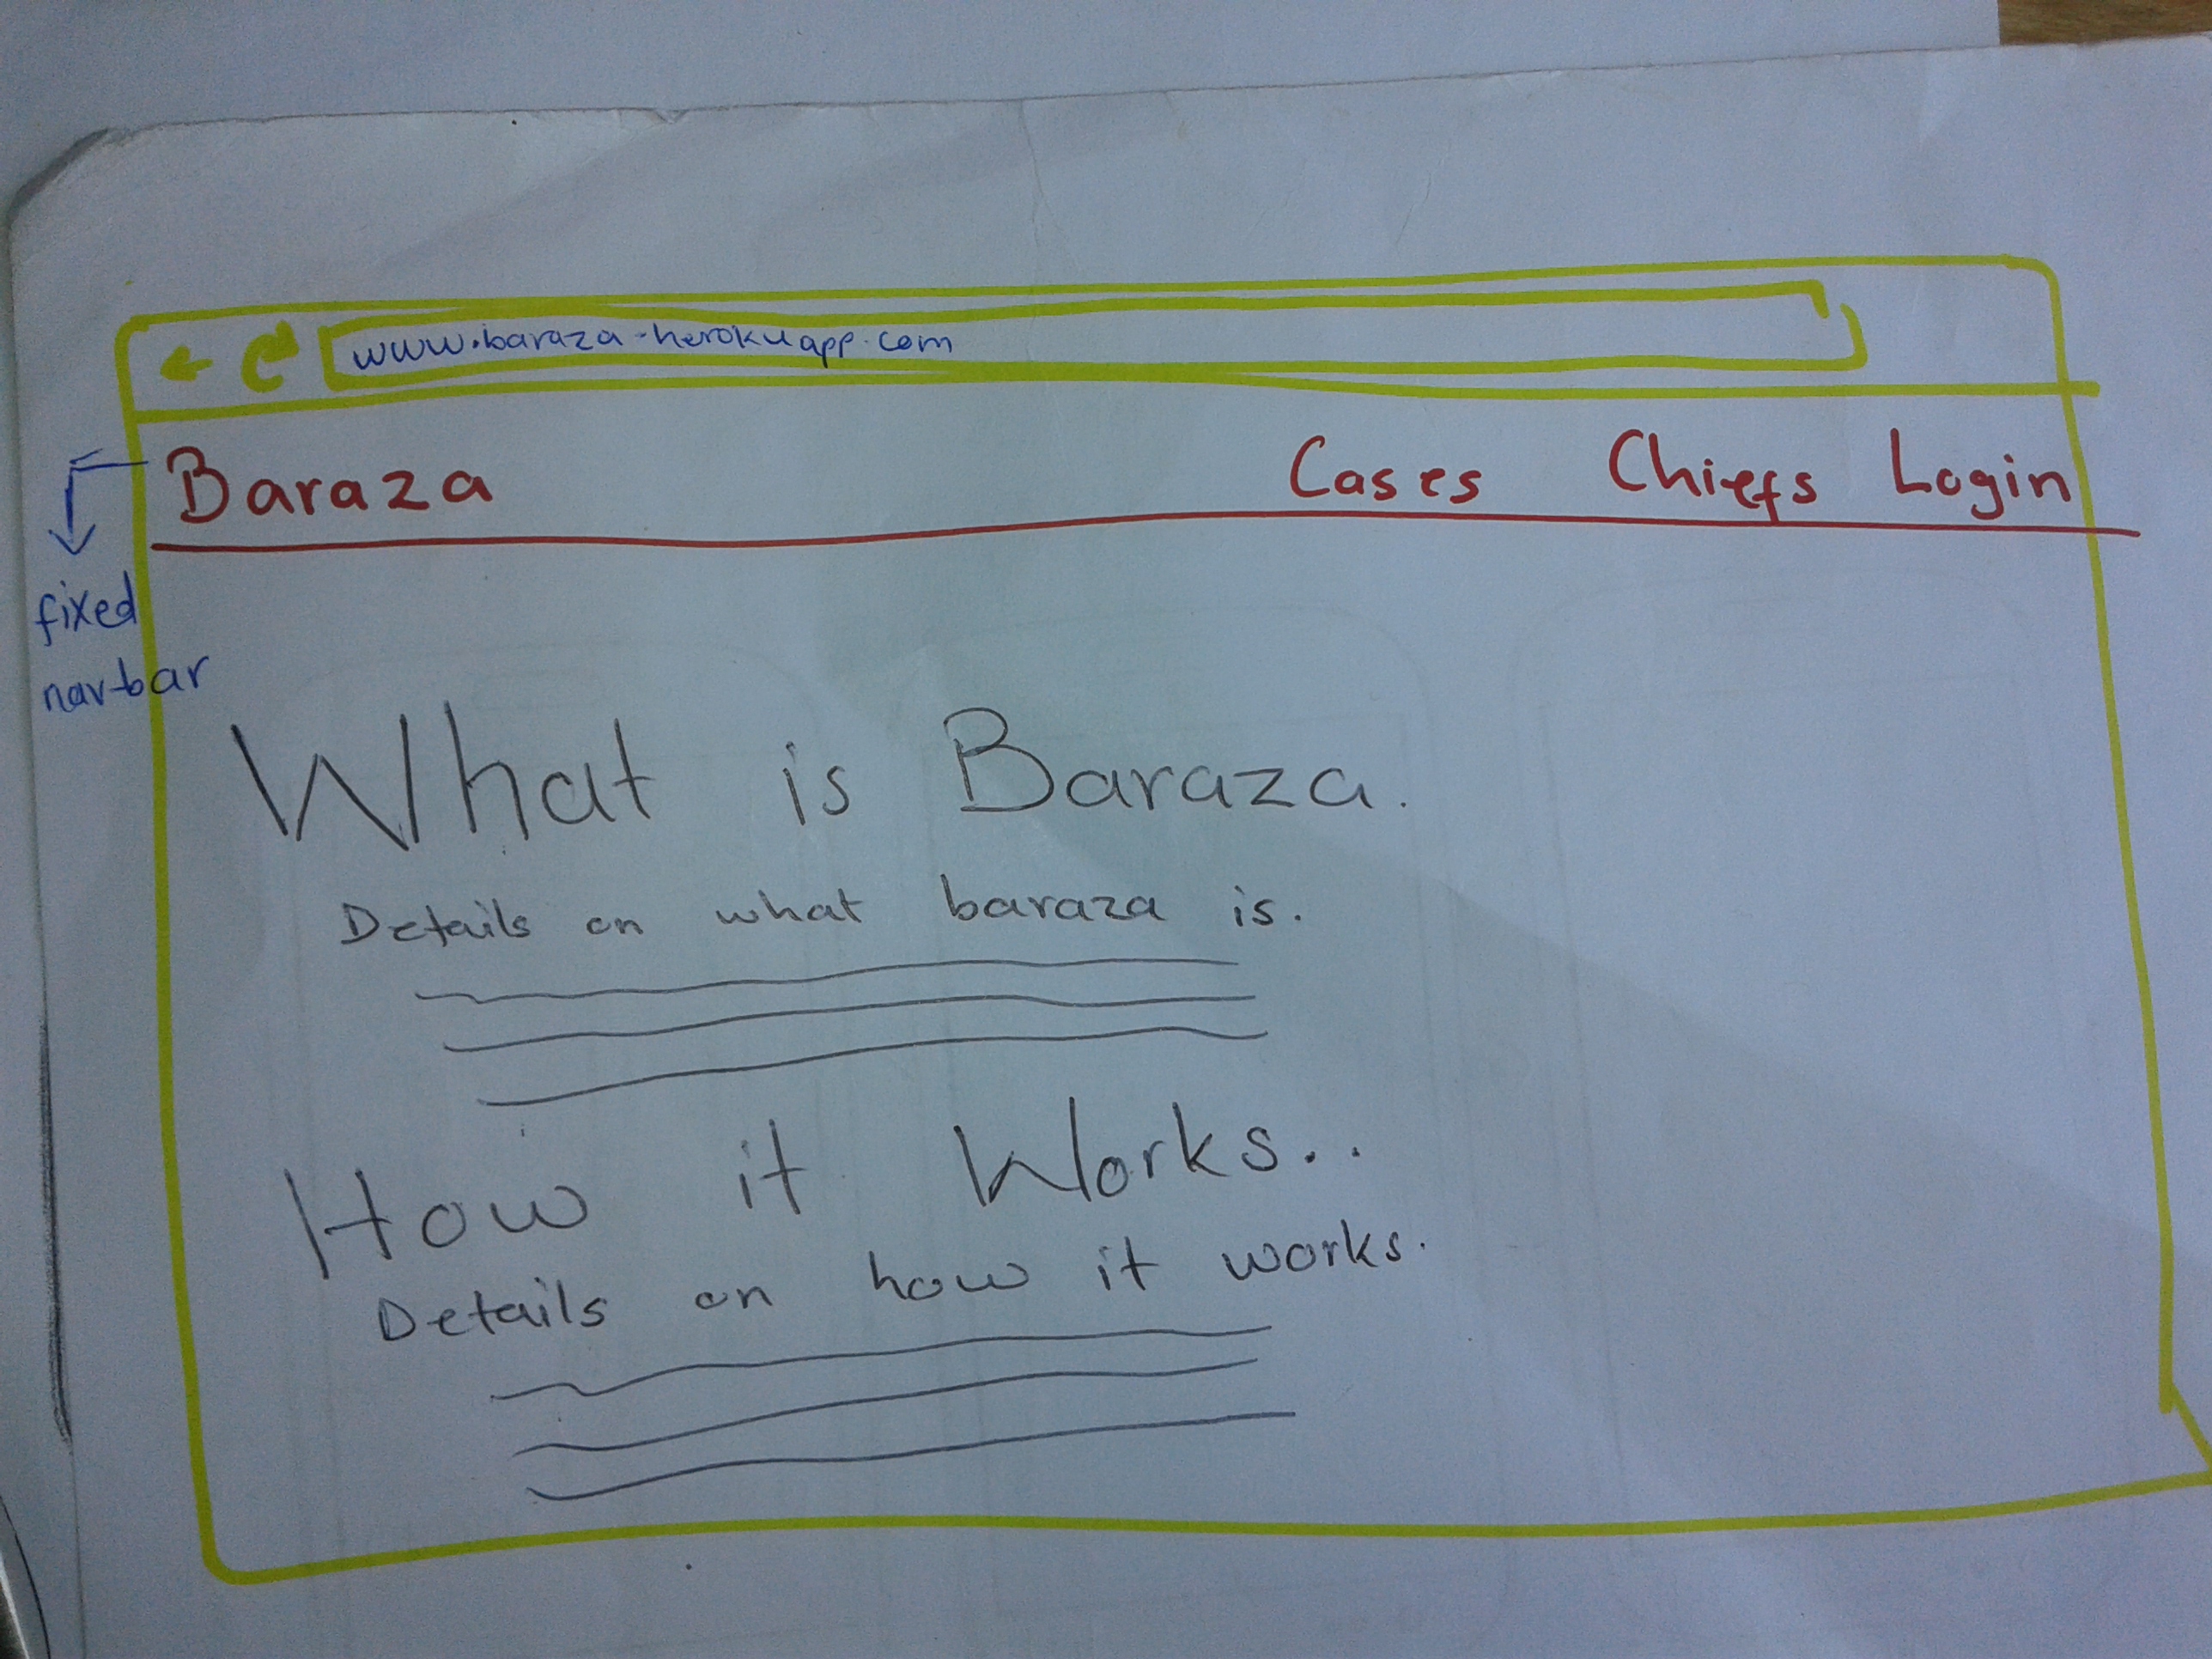 www.baraza-herokuapp.com
Baraza Cases Chiefs Login
fixed
nav-bar
What is Baraza.
Details on what baraza is.
How it Works..
Details on how it works.